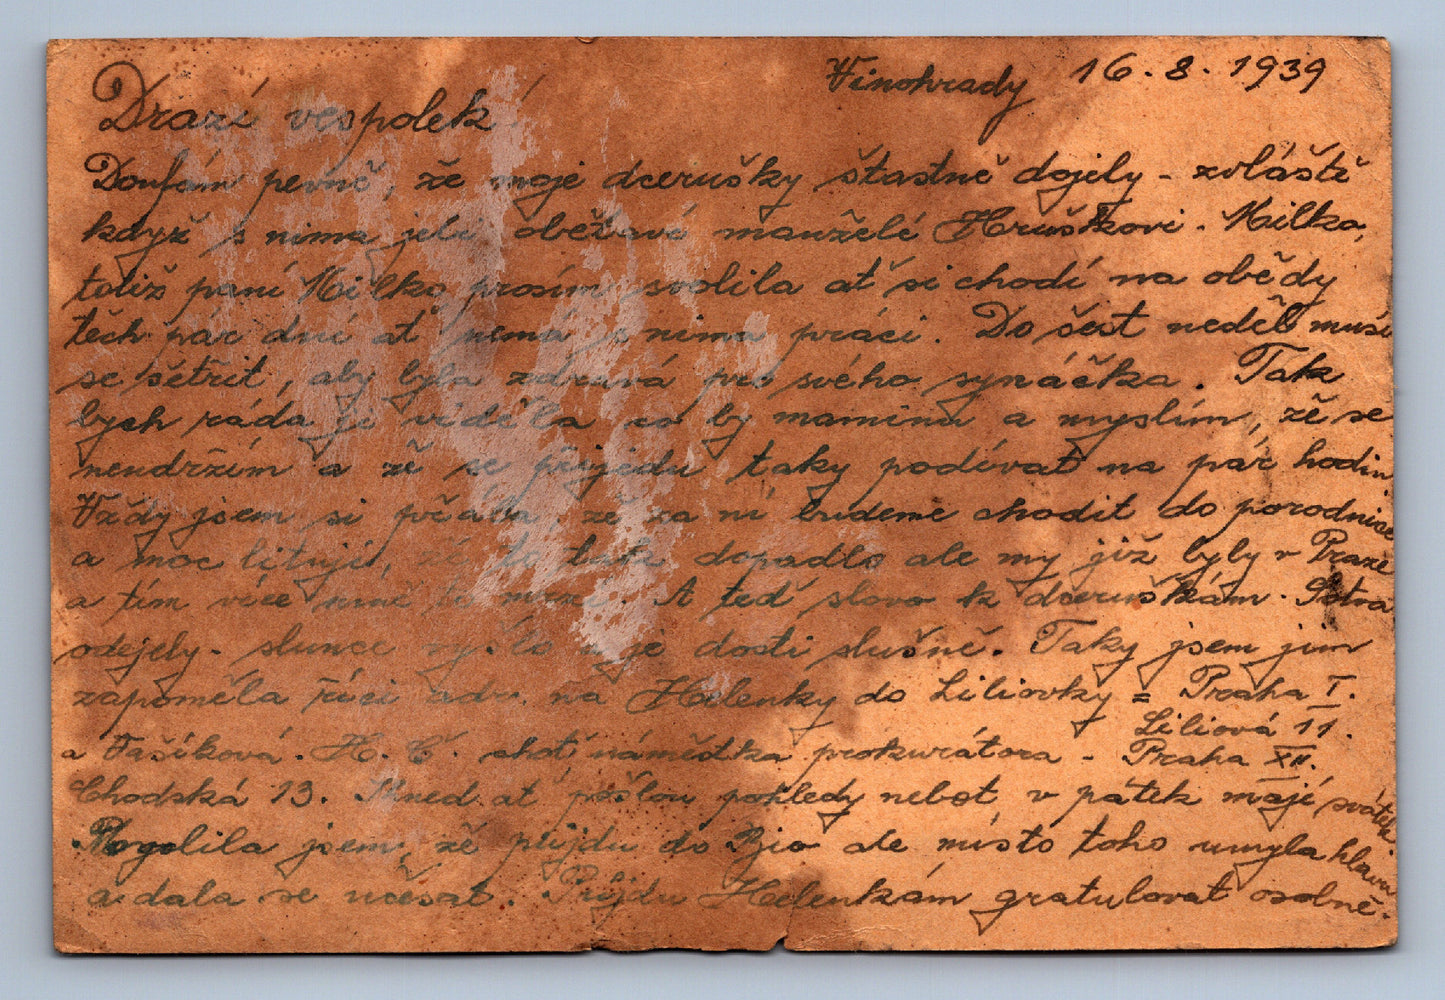 Vinohrady 16.8.1939
Drazí vespolek!
Doufám pevně, že moje dcerušky šťastně dojely - zvláště
když s nima jeli oběťavé manželé Hruškovi. Milka,
totiž paní Milka prosím svolila ať si chodí na obědy
těch pár dní ať nemá s nima práci. Do šest neděl musí
se šetřit, aby byla zdravá pro svého synáčka. Tak
bych ráda je viděla co by maminu a myslím, žě se
neudržím a že se přijedu taky podívat na pár hodin
Vždy jsem si přála, že za ní budeme chodit do porodnice
a moc lituji, že to tak dopadlo ale my již byly v Praze
a tím více mně to mrzí. A teď slovo k dceruškám. Sotva
odejely - slunce vyšlo a je dosti slušně. Taky jsem jim
zapoměla říci adr. na Helenky do Liliovky = Praha I.
Liliová 11.
a Vašíková. H. Č. choť náměstka prokurátora - Praha XII.
Chodská 13. Hned ať pošlou pohledy neboť v pátek mají svátek
Pogolila jsem, žě přijdu do Bio ale místo toho umyla hlavu
a dala se učesat. Přijdu Helenkám gratulovat osobně.